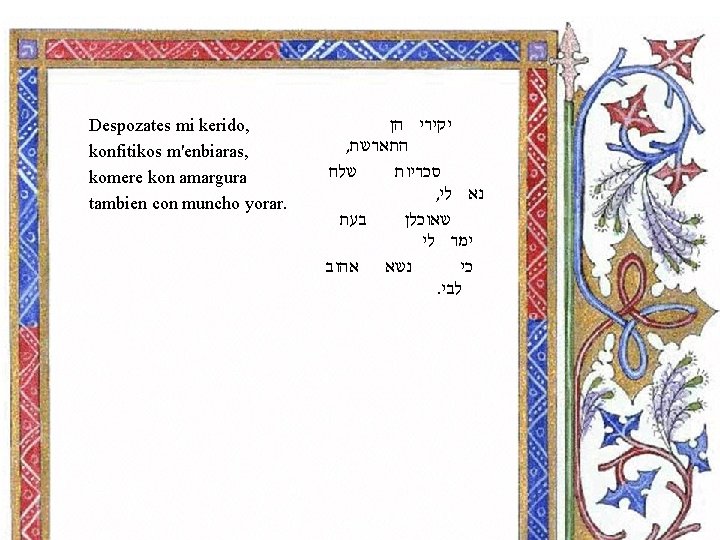 Despozates mi kerido,
konfitikos m'enbiaras,
komere kon amargura
tambien con muncho yorar.
יקירי הן
התארשת,
סכריות שלח
נא לי,
שאוכלן בעת
ימר לי
כי נשא אהוב
לבי.